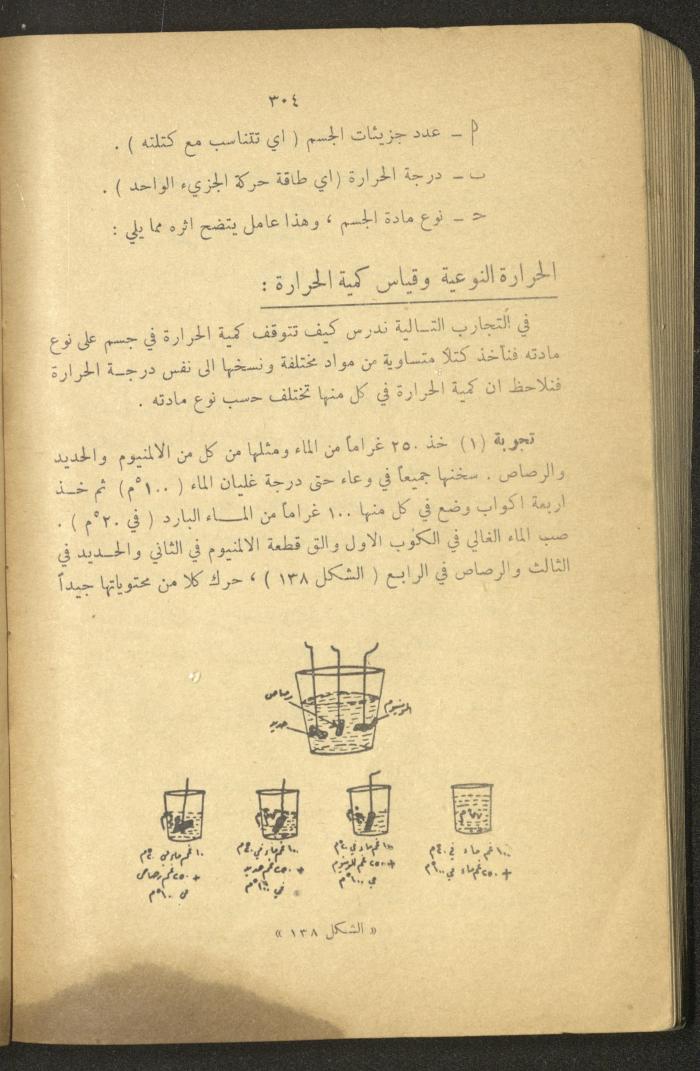 ٣٠٤
أ ــ عدد جزيئات الجسم ( اي تتناسب مع كتلته ) .
ب ــ درجة الحرارة (اي طاقة حركة الجزيء الواحد ) .
ح ــ نوع مادة الجسم ، وهذا عامل يتضح اثره مما يلي :
الحرارة النوعية وقياس كمية الحرارة :
في التجارب التــالية ندرس كيف تتوقف كمية الحرارة في جسم على نوع
مادته فنأخذ كتلاً متساوية من مواد مختلفة ونسخنها الى نفس درجــة الحرارة
فنلاحظ ان كمية الحرارة في كل منها تختلف حسب نوع مادته .
تجربة (١) خذ ٢٥٠ غراماً من الماء ومثلها من كل من الالمنيوم والحديد
والرصاص . سخنها جميعاً في وعاء حتى درجة غليان الماء ( ١٠٠°م) ثم خــذ
اربعة اكواب وضع في كل منها ١٠٠ غراماً من المــــاء البارد ( في ٢٠°م ) .
صب الماء الغالي في الكوب الاول والق قطعة الالمنيوم في الثاني والحــديد في
الثالث والرصاص في الرابـع ( الشكل ١٣٨ ) ، حرك كلا من محتوياتها جيداً
رصاص
حديد
المونيوم
١٠٠ غم ماء في ٢٠°م
+ ٢٥٠ غم ماء في ١٠٠°م
١٠٠ غم ماء في ٢٠°م
+ ٢٥٠ غم المونيوم
في ١٠٠°م
١٠٠ غم ماء في ٢٠°م
+ ٢٥٠ غم حديد
في ١٠٠°م
١٠٠ غم ماء في ٢٠°م
+ ٢٥٠ غم رصاص
في ١٠٠°م
« الشكل ١٣٨ »